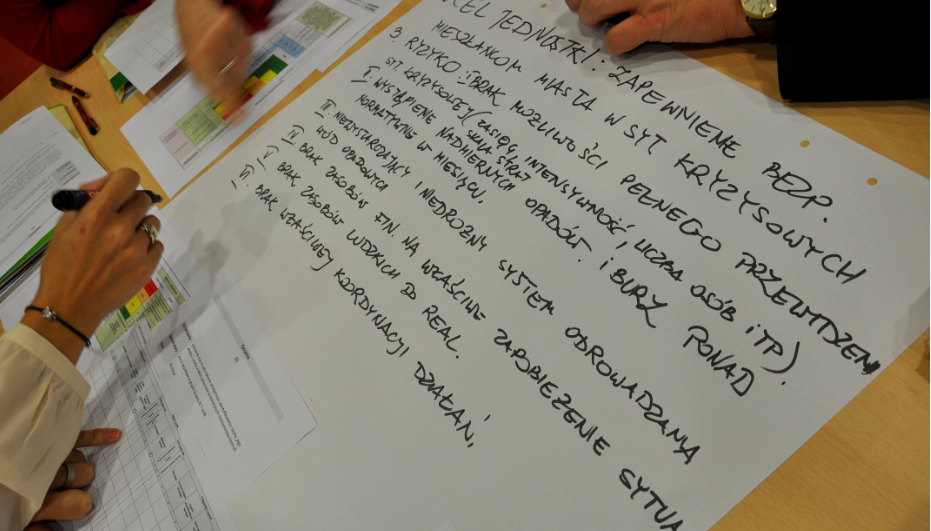 CEL JEDNOSTKI: ZAPEWNIENIE BEZP.
MIESZKAŃCOM MIASTA W SYT KRYZYSOWYCH
3. RYZYKO: I BRAK MOŻLIWOŚCI PEŁNEGO PRZEWIDZENIA
SYT KRYZYSOWEJ (ZASIĘG, INTENSYWNOŚĆ, LICZBA OSÓB ITP).
SKALA STRAT
II WYSTĄPIENIE NADMIERNYCH OPADÓW I BURZ PONAD
NORMATYWNE W MIESIĄCU.
III NIEWYSTARCZAJĄCY I NIEDROŻNY SYSTEM ODROWADZANIA
WÓD OPADOWYCH
IV BRAK ZASOBÓW FIN. NA WŁAŚCIWE ZAPOBIEŻENIE SYTUA
V BRAK ZASOBÓW LUDZKICH DO REAL.
VI BRAK WŁAŚCIWEJ KORDYNACJI DZIAŁAŃ,